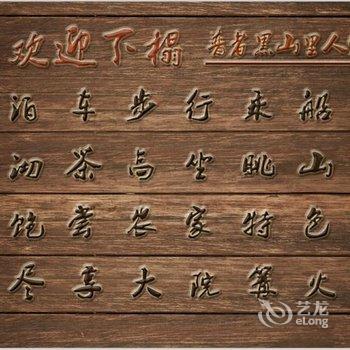 欢迎下榻 普者黑山里人
泊车步行乘船
沏茶高坐眺山
饱尝农家特色
尽享大院篝火
艺龙
eLong